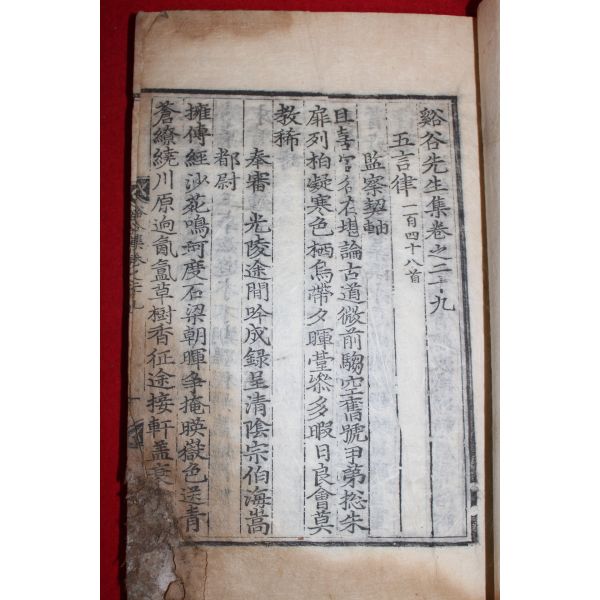 谿谷先生集卷之二十九
五言律 一百四十八首
監察契軸
且喜官名在堪論古道微前騶空舊號甲第揔朱
扉列柏凝寒色栖烏帶夕暉臺叅多暇日良會莫
教稀
奉審 光陵途間吟成錄呈清陰宗伯海嵩
都尉
擁傳經沙花鳴珂度石梁朝暉爭掩暎嶽色送青
蒼繚繞川原逈氤氳草樹香征途接軒盖衰
谿谷集卷之二十九